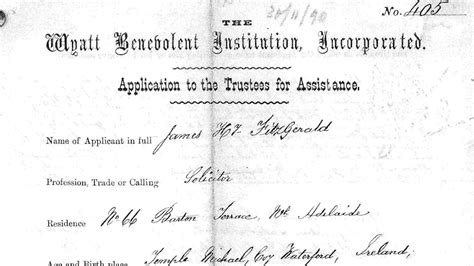 No. 405
30/11/90
THE
Wyatt Benevolent Institution, Incorporated.
Application to the Trustees for Assistance.
Name of Applicant in full James Hy. FitzGerald
Profession, Trade or Calling Solicitor
Residence No 66 Barton Terrace, Nth Adelaide
Age and Birth place Temple Michael, Coy Waterford, Ireland;